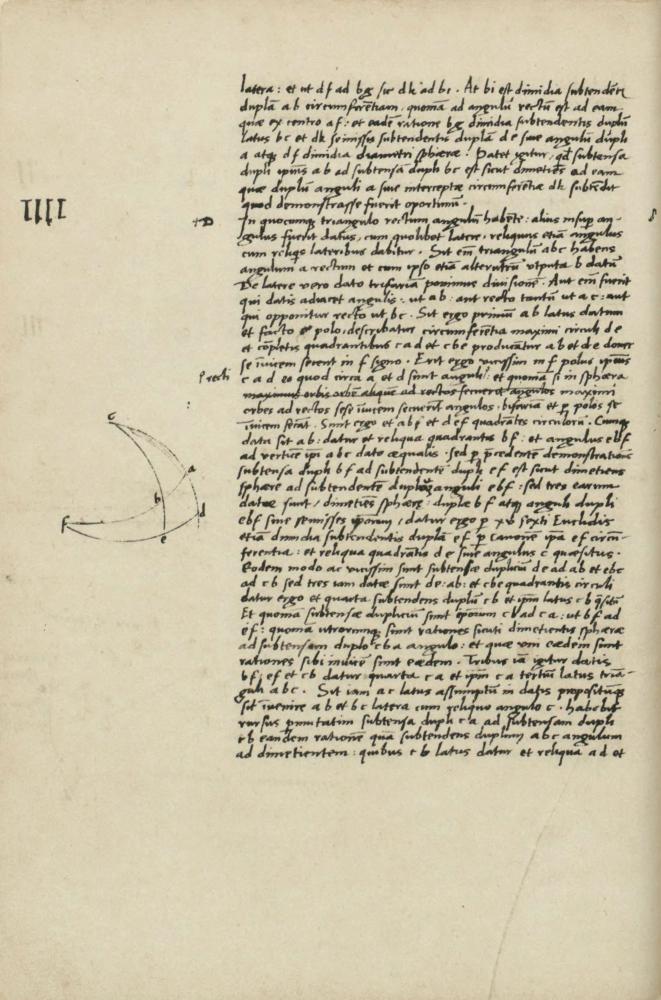 latera : et ut d f ad b g sic d k ad b i . At b i est dimidia subtendētis
duplā a b circumferētiam , quoniā ad angulū rectū est ad eam
quæ ex centro a f : et eadē ratione b g dimidia subtendentis duplū
latus b c et d k semissis subtendentis duplā d e siue angulū dupli
a atq d f dimidia diametri sphæræ . Patet igitur , qd subtensa
dupli ipsius a b ad subtensā dupli b c est sicut dimetiēs ad eam
quæ duplū anguli a siue interceptæ circumferētiæ d k subtēdit
quod demonstrasse fuerit oportunū .
IIII
In quocumq triangulo rectum angulū habēte : alius insup an-
gulus fuerit datus , cum quolibet latere , reliquus etiā angulus
cum reliqs lateribus dabitur . Sit em triangulū a b c habens
angulum a rectum et cum ipso etiā alterutrū utputa b datū
De latere vero dato trifariā ponimus diuisionē . Aut em fuerit
qui datis adiacet angulis : ut a b : aut recto tantū ut a c : aut
qui opponitur recto ut b c . Sit ergo primum a b latus datum
et facto polo , describatur circumferētia maximi circuli d e
et cōpletis quadrantibus c a d et c b e producātur a b et d e donec
se inuicem secent in f signo . Erit ergo vicissim in f polus ipsius
recti
c a d eo quod circa a et d sint anguli : et quoniā si in sphæra
maximus orbis orbē aliquē ad rectos secuerit angulos maximi
orbes ad rectos sese inuicem secuerit angulos , bifariā et p polos se
inuicem secāt . Sunt ergo et a b f et d e f quadrātes circulorū . Cumq
data sit a b : datur et reliqua quadrantis b f : et angulus e b f
ad verticē ipi a b c dato æqualis . sed p præcedentē demonstrationē
subtensa dupli b f ad subtendentē dupli e f est sicut dimetiens
sphæræ ad subtendentē duplū anguli e b f . sed tres earum
datæ sunt , dimetiēs sphæræ : duplæ b f atq anguli dupli
e b f siue semisses ipsorum , datur ergo p xv sexti Euclidis
etiā dimidia subtendentis duplā e f p canonē ipā e f circū-
ferentia : et reliqua quadrātis d e siue angulus c quæsitus .
Eodem modo ac vicissim sunt subtensæ duplicium d e ad a b et e b c
ad c b sed tres iam datæ sunt d e : a b : et c b e quadrantis circuli
datur ergo et quarta subtendens duplū c b et ipm latus c b qsitū
Et quoniā subtensæ duplicium sunt ipsorum c b ad c a : ut b f ad
e f : quoniā utrorumq sunt rationes sicuti dimetientis sphæræ
ad subtensam duplo c b a angulo : et quæ uni eædem sunt
rationes sibi inuicē sunt eædem . Tribus iā igitur datis
b f , e f et c b datur quarta c a et ipm c a tertiū latus triā-
guli a b c . Sit iam a c latus assumptū in datis propositūq
sit inuenire a b et b c latera cum reliquo angulo c . habebit
rursus pmutatim subtensa dupli c a ad subtensam dupli
c b eandem rationē quā subtendens duplum a b c angulum
ad dimetientem : quibus c b latus datur et reliqua a d et
c
a
b
d
f
e